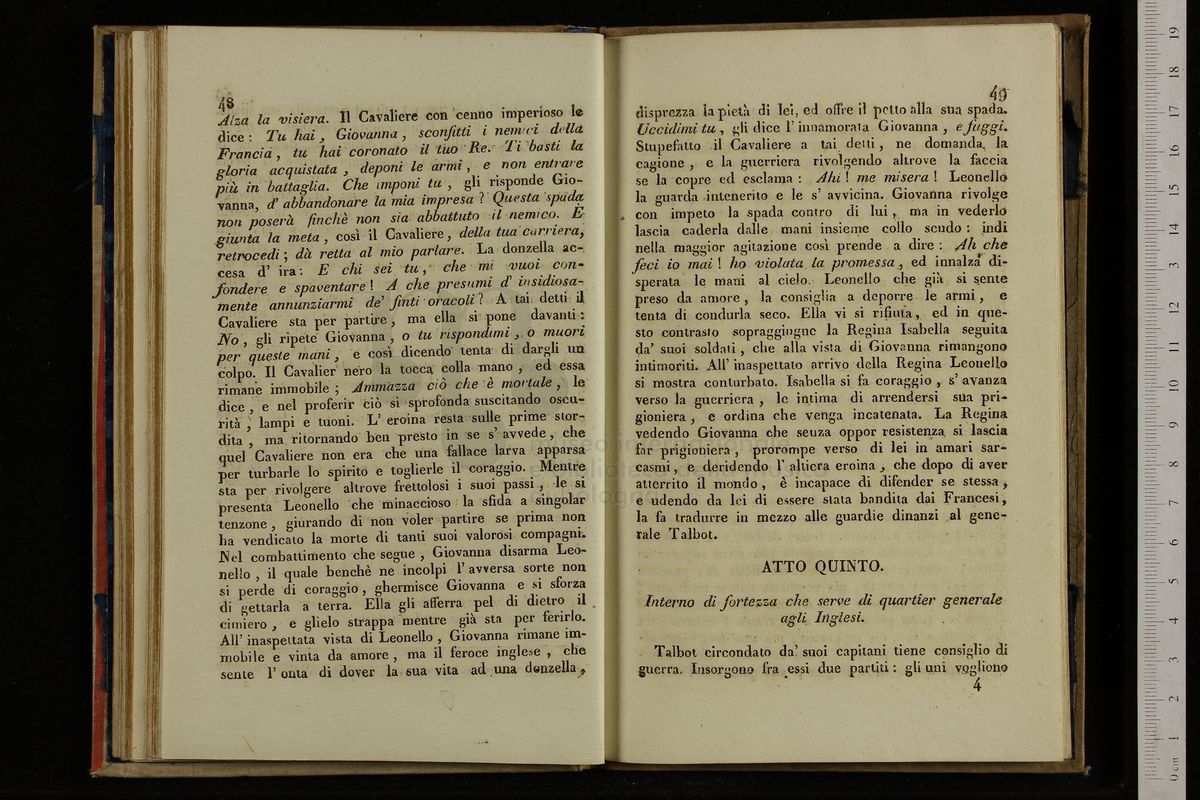 48
Alza la visiera. Il Cavaliere con cenno imperioso le
dice : Tu hai , Giovanna , sconfitti i nemici della
Francia , tu hai coronato il tuo Re. Ti basti la
gloria acquistata , deponi le armi , e non entrare
più in battaglia. Che imponi tu , gli risponde Gio-
vanna, d' abbandonare la mia impresa ? Questa spada
non poserà finchè non sia abbattuto il nemico. E
giunta la meta , così il Cavaliere , della tua carriera,
retrocedi ; dà retta al mio parlare. La donzella ac-
cesa d' ira : E chi sei tu , che mi vuoi con-
fondere e spaventare ! A che presumi d' insidiosa-
mente annunziarmi de' finti oracoli ? A tai detti il
Cavaliere sta per partire , ma ella si pone davanti :
No , gli ripete Giovanna , o tu rispondimi , o muori
per queste mani , e così dicendo tenta di dargli un
colpo. Il Cavalier nero la tocca colla mano , ed essa
rimane immobile ; Ammazza ciò che è mortale , le
dice , e nel proferir ciò si sprofonda suscitando oscu-
rità , lampi e tuoni. L' eroina resta sulle prime stor-
dita , ma ritornando ben presto in se s' avvede , che
quel Cavaliere non era che una fallace larva apparsa
per turbarle lo spirito e toglierle il coraggio. Mentre
sta per rivolgere altrove frettolosi i suoi passi , le si
presenta Leonello che minaccioso la sfida a singolar
tenzone , giurando di non voler partire se prima non
ha vendicato la morte di tanti suoi valorosi compagni.
Nel combattimento che segue , Giovanna disarma Leo-
nello , il quale benchè ne incolpi l' avversa sorte non
si perde di coraggio , ghermisce Giovanna e si sforza
di gettarla a terra. Ella gli afferra pel di dietro il
cimiero , e glielo strappa mentre già sta per ferirlo.
All' inaspettata vista di Leonello , Giovanna rimane im-
mobile e vinta da amore , ma il feroce inglese , che
sente l' onta di dover la sua vita ad una donzella ,
49
disprezza la pietà di lei, ed offre il petto alla sua spada.
Uccidimi tu , gli dice l' innamorata Giovanna , e fuggi.
Stupefatto il Cavaliere a tai detti , ne domanda la
cagione , e la guerriera rivolgendo altrove la faccia
se la copre ed esclama : Ahi ! me misera ! Leonello
la guarda intenerito e le s' avvicina. Giovanna rivolge
con impeto la spada contro di lui , ma in vederlo
lascia caderla dalle mani insieme collo scudo : indi
nella maggior agitazione così prende a dire : Ah che
feci io mai ! ho violata la promessa , ed innalza di-
sperata le mani al cielo. Leonello che già si sente
preso da amore , la consiglia a deporre le armi , e
tenta di condurla seco. Ella vi si rifiuta , ed in que-
sto contrasto sopraggiugne la Regina Isabella seguita
da' suoi soldati , che alla vista di Giovanna rimangono
intimoriti. All' inaspettato arrivo della Regina Leonello
si mostra conturbato. Isabella si fa coraggio , s' avanza
verso la guerriera , le intima di arrendersi sua pri-
gioniera , e ordina che venga incatenata. La Regina
vedendo Giovanna che senza oppor resistenza si lascia
far prigioniera , prorompe verso di lei in amari sar-
casmi , e deridendo l' altiera eroina , che dopo di aver
atterrito il mondo , è incapace di difender se stessa ,
e udendo da lei di essere stata bandita dai Francesi ,
la fa tradurre in mezzo alle guardie dinanzi al gene-
rale Talbot.
ATTO QUINTO.
Interno di fortezza che serve di quartier generale
agli Inglesi.
Talbot circondato da' suoi capitani tiene consiglio di
guerra. Insorgono fra essi due partiti : gli uni vogliono
4